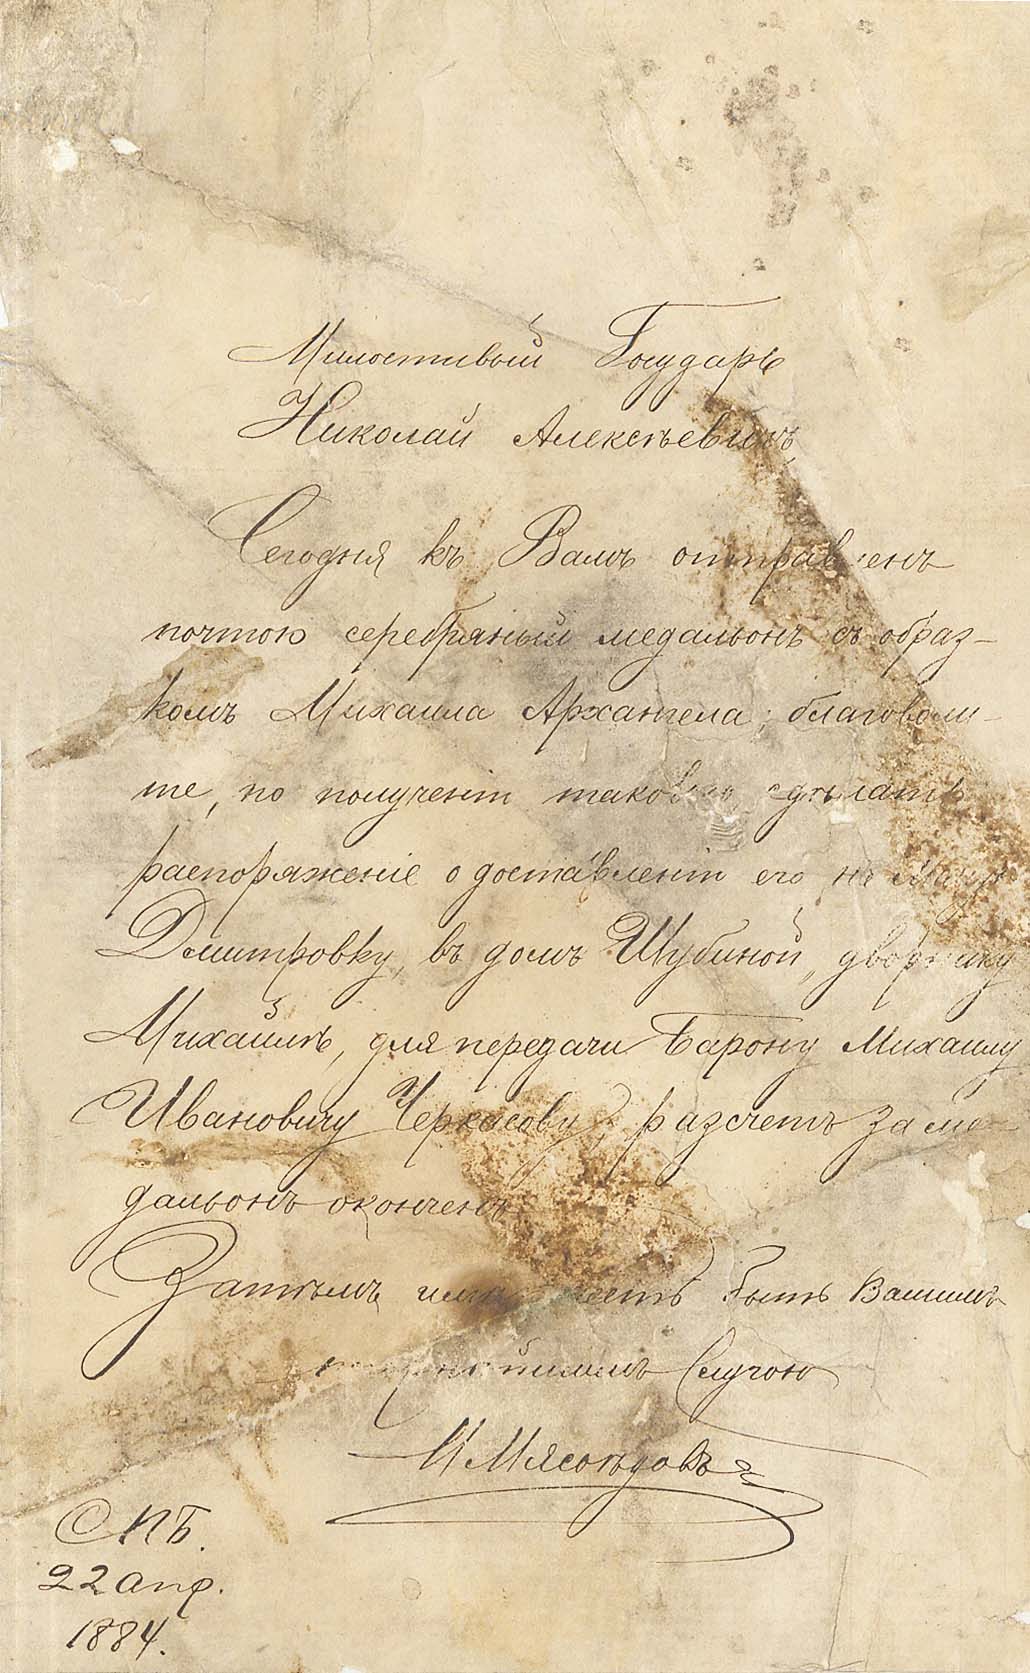 Милостивый Государь
Николай Алексѣевичъ,
Сегодня къ Вамъ отправленъ
почтою серебряный медальонъ съ образ-
комъ Михаила Архангела; благоволи-
те, по полученіи таковаго сдѣлать
распоряженіе о доставленіи его на Малую
Дмитровку, въ домъ Шубиной, дворнику
Михайлѣ, для передачи Барону Михаилу
Ивановичу Черкасову; разсчетъ за ме-
дальонъ оконченъ.
Затѣмъ имѣю честь быть Вашимъ
покорнѣйшимъ Слугою
И Мясоѣдовъ
СПБ.
22 апр.
1884.